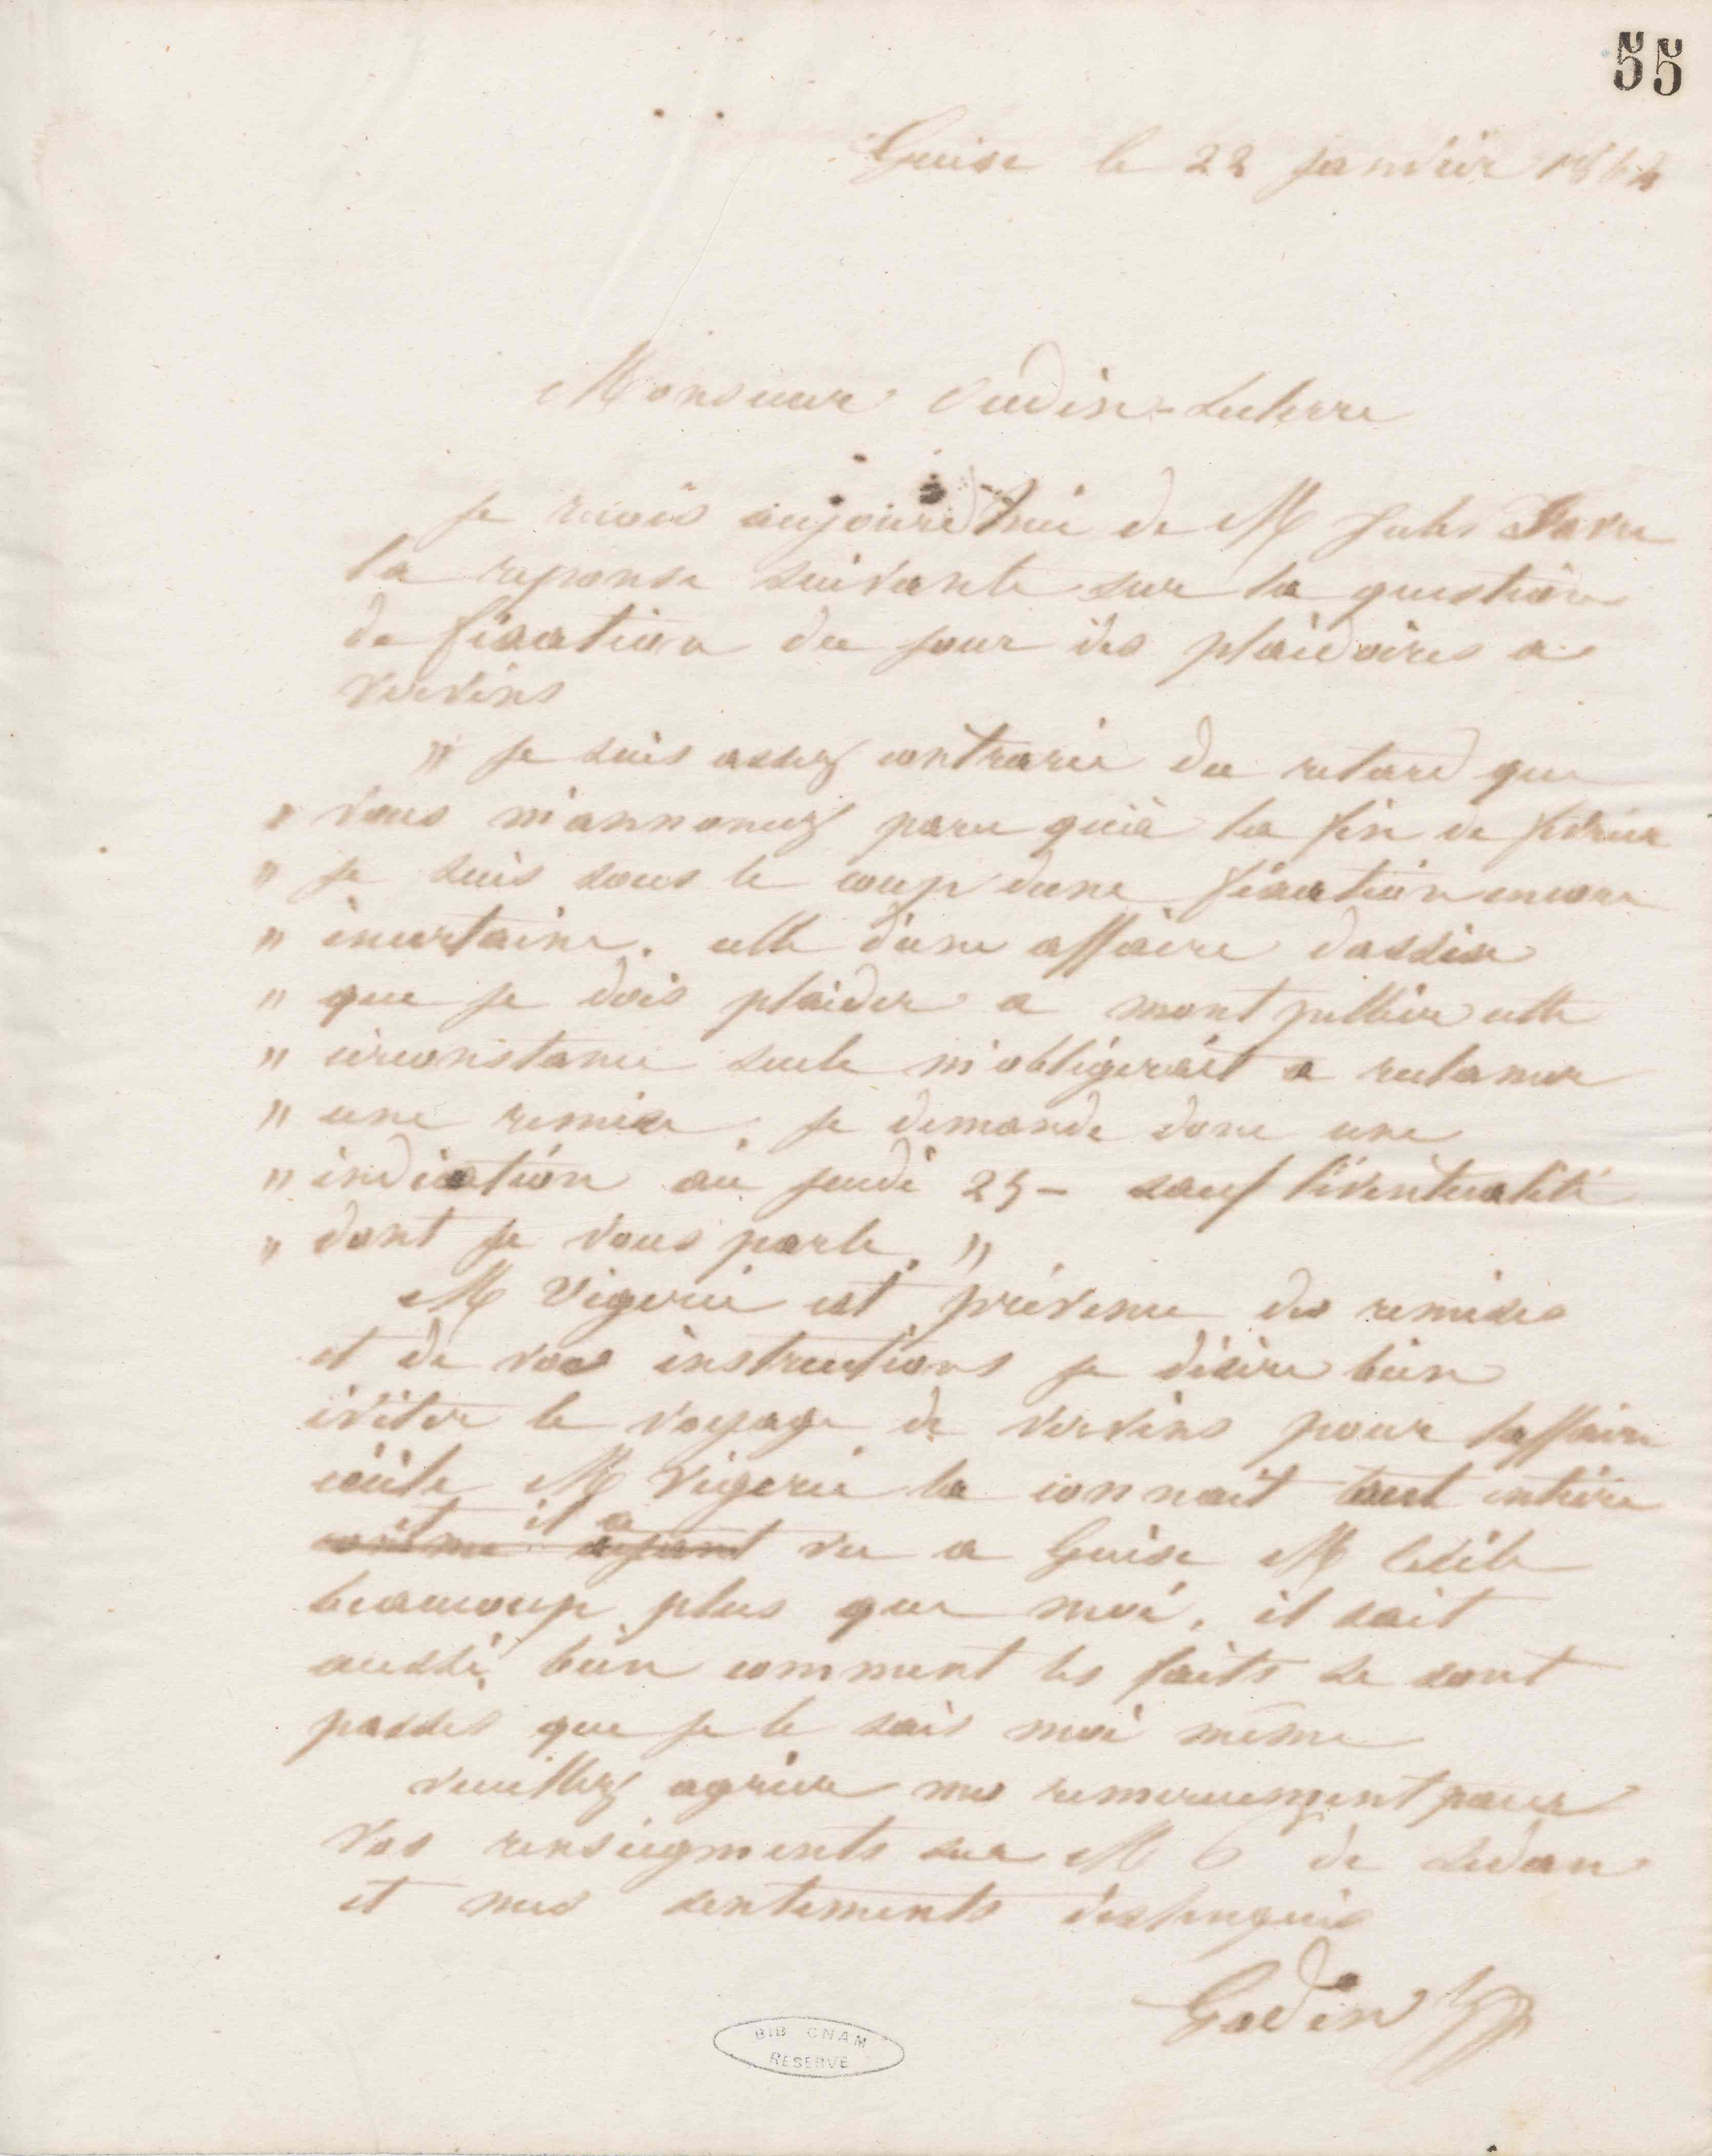 55
Guise le 22 janvier 1864
Monsieur Oudin-Leclerre
je recois aujourd'hui de M Jules Favre
la reponse suivante sur la question
de fixation du jour des plaidoiries a
vervins
" je suis assez contrarié du retard que
" vous m'annoncez parce qu'à la fin de fevrier
" je suis sous le coup dune fixation encore
" incertaine. celle d'une affaire dassise
" que je dois plaider a montpellier cette
" circonstance seule m'obligerait a reclamer
" une remise. je demande donc une
" indication au jeudi 25 - sauf l'éventualité
" dont je vous parle. "
M Vigerie est prévenu des remises
et de vos instructions je désire bien
éviter le voyage de vervins pour laffaire
M Vigerie la connait tout entière
et il a
vu a Guise M
beaucoup plus que moi, il sait
aussi bien comment les faits se sont
passés que je le sais moi même
veuillez agréer mes remerciement pour
vos renseignments sur M C de Sedan
et mes sentiments distingués
Godin
BIB CNAM
RESERVE